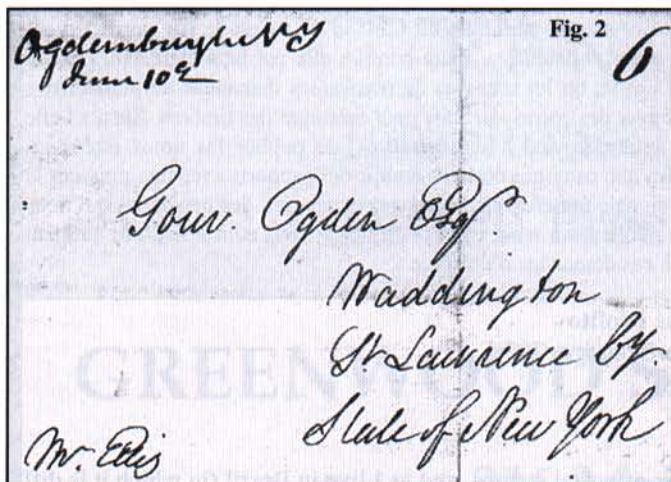 Ogdensburgh NY
June 10th
Fig. 2
6
Gouv. Ogden Esqr
Waddington
St Lawrence by
State of New York
Mr. Ellis
GREENWOOD'S